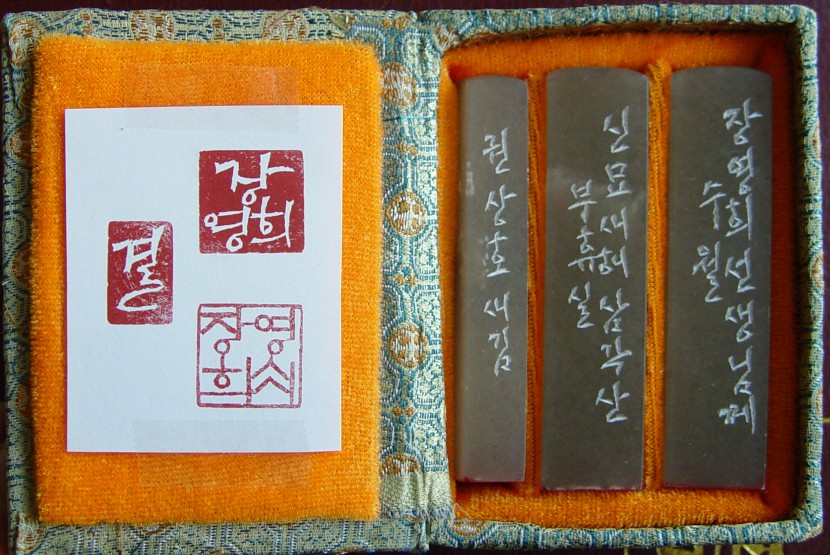 장
영희
결
장영
장영희선생님께
수월
신묘새해 삼각산
부휴실
권상호 새김